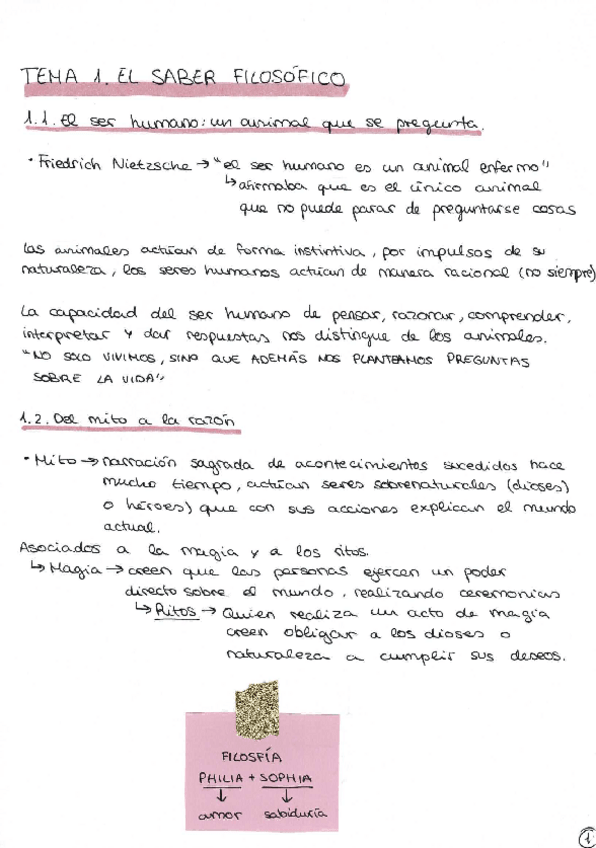 TEMA 1. EL SABER FILOSÓFICO
1.1. El ser humano: un animal que se pregunta.
· Friedrich Nietzsche → "el ser humano es un animal enfermo"
↳ afirmaba que es el único animal
que no puede parar de preguntarse cosas
Los animales actúan de forma instintiva, por impulsos de su
naturaleza, los seres humanos actúan de manera racional (no siempre)
La capacidad del ser humano de pensar, razonar, comprender,
interpretar y dar respuestas nos distingue de los animales.
"NO SOLO VIVIMOS, SINO QUE ADEMÁS NOS PLANTEAMOS PREGUNTAS
SOBRE LA VIDA"
1.2. Del mito a la razón
· Mito → narración sagrada de acontecimientos sucedidos hace
mucho tiempo, actúan seres sobrenaturales (dioses)
o héroes) que con sus acciones explican el mundo
actual.
Asociados a la magia y a los ritos.
↳ Magia → creen que las personas ejercen un poder
directo sobre el mundo, realizando ceremonias
↳ Ritos → Quien realiza un acto de magia
creen obligar a los dioses o
naturaleza a cumplir sus deseos.
FILOSFÍA
PHILIA + SOPHIA
↓ ↓
amor sabiduría
1